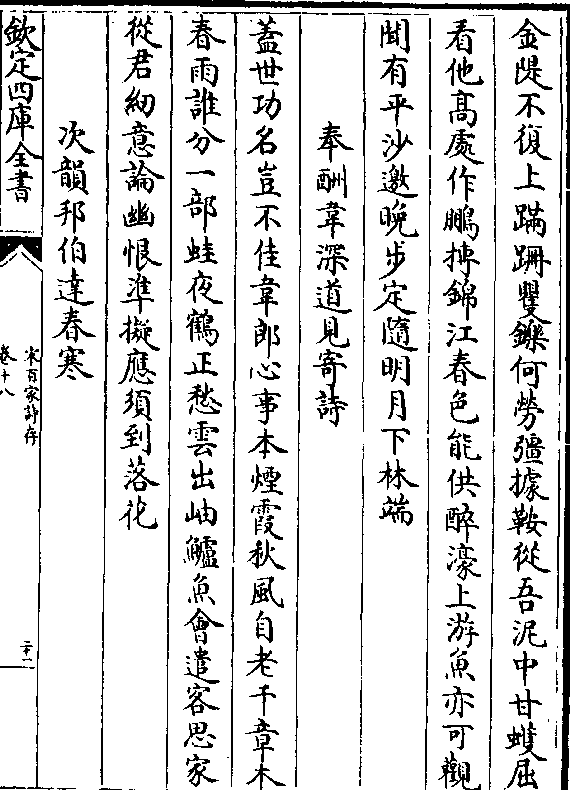 金隄不復上蹣跚矍鑠何勞彊據鞍從吾泥中甘蠖屈
看他髙處作鵬摶錦江春色能供醉濠上游魚亦可觀
聞有平沙邀晚步定隨明月下林端
奉酬韋深道見寄詩
蓋世功名豈不佳韋郎心事本煙霞秋風自老千章木
春雨誰分一部蛙夜鶴正愁雲出岫鱸魚會遣客思家
從君紉意論幽恨準擬應須到落花
次韻邦伯達春寒
欽定四庫全書
宋百家詩存
卷十八
二十一